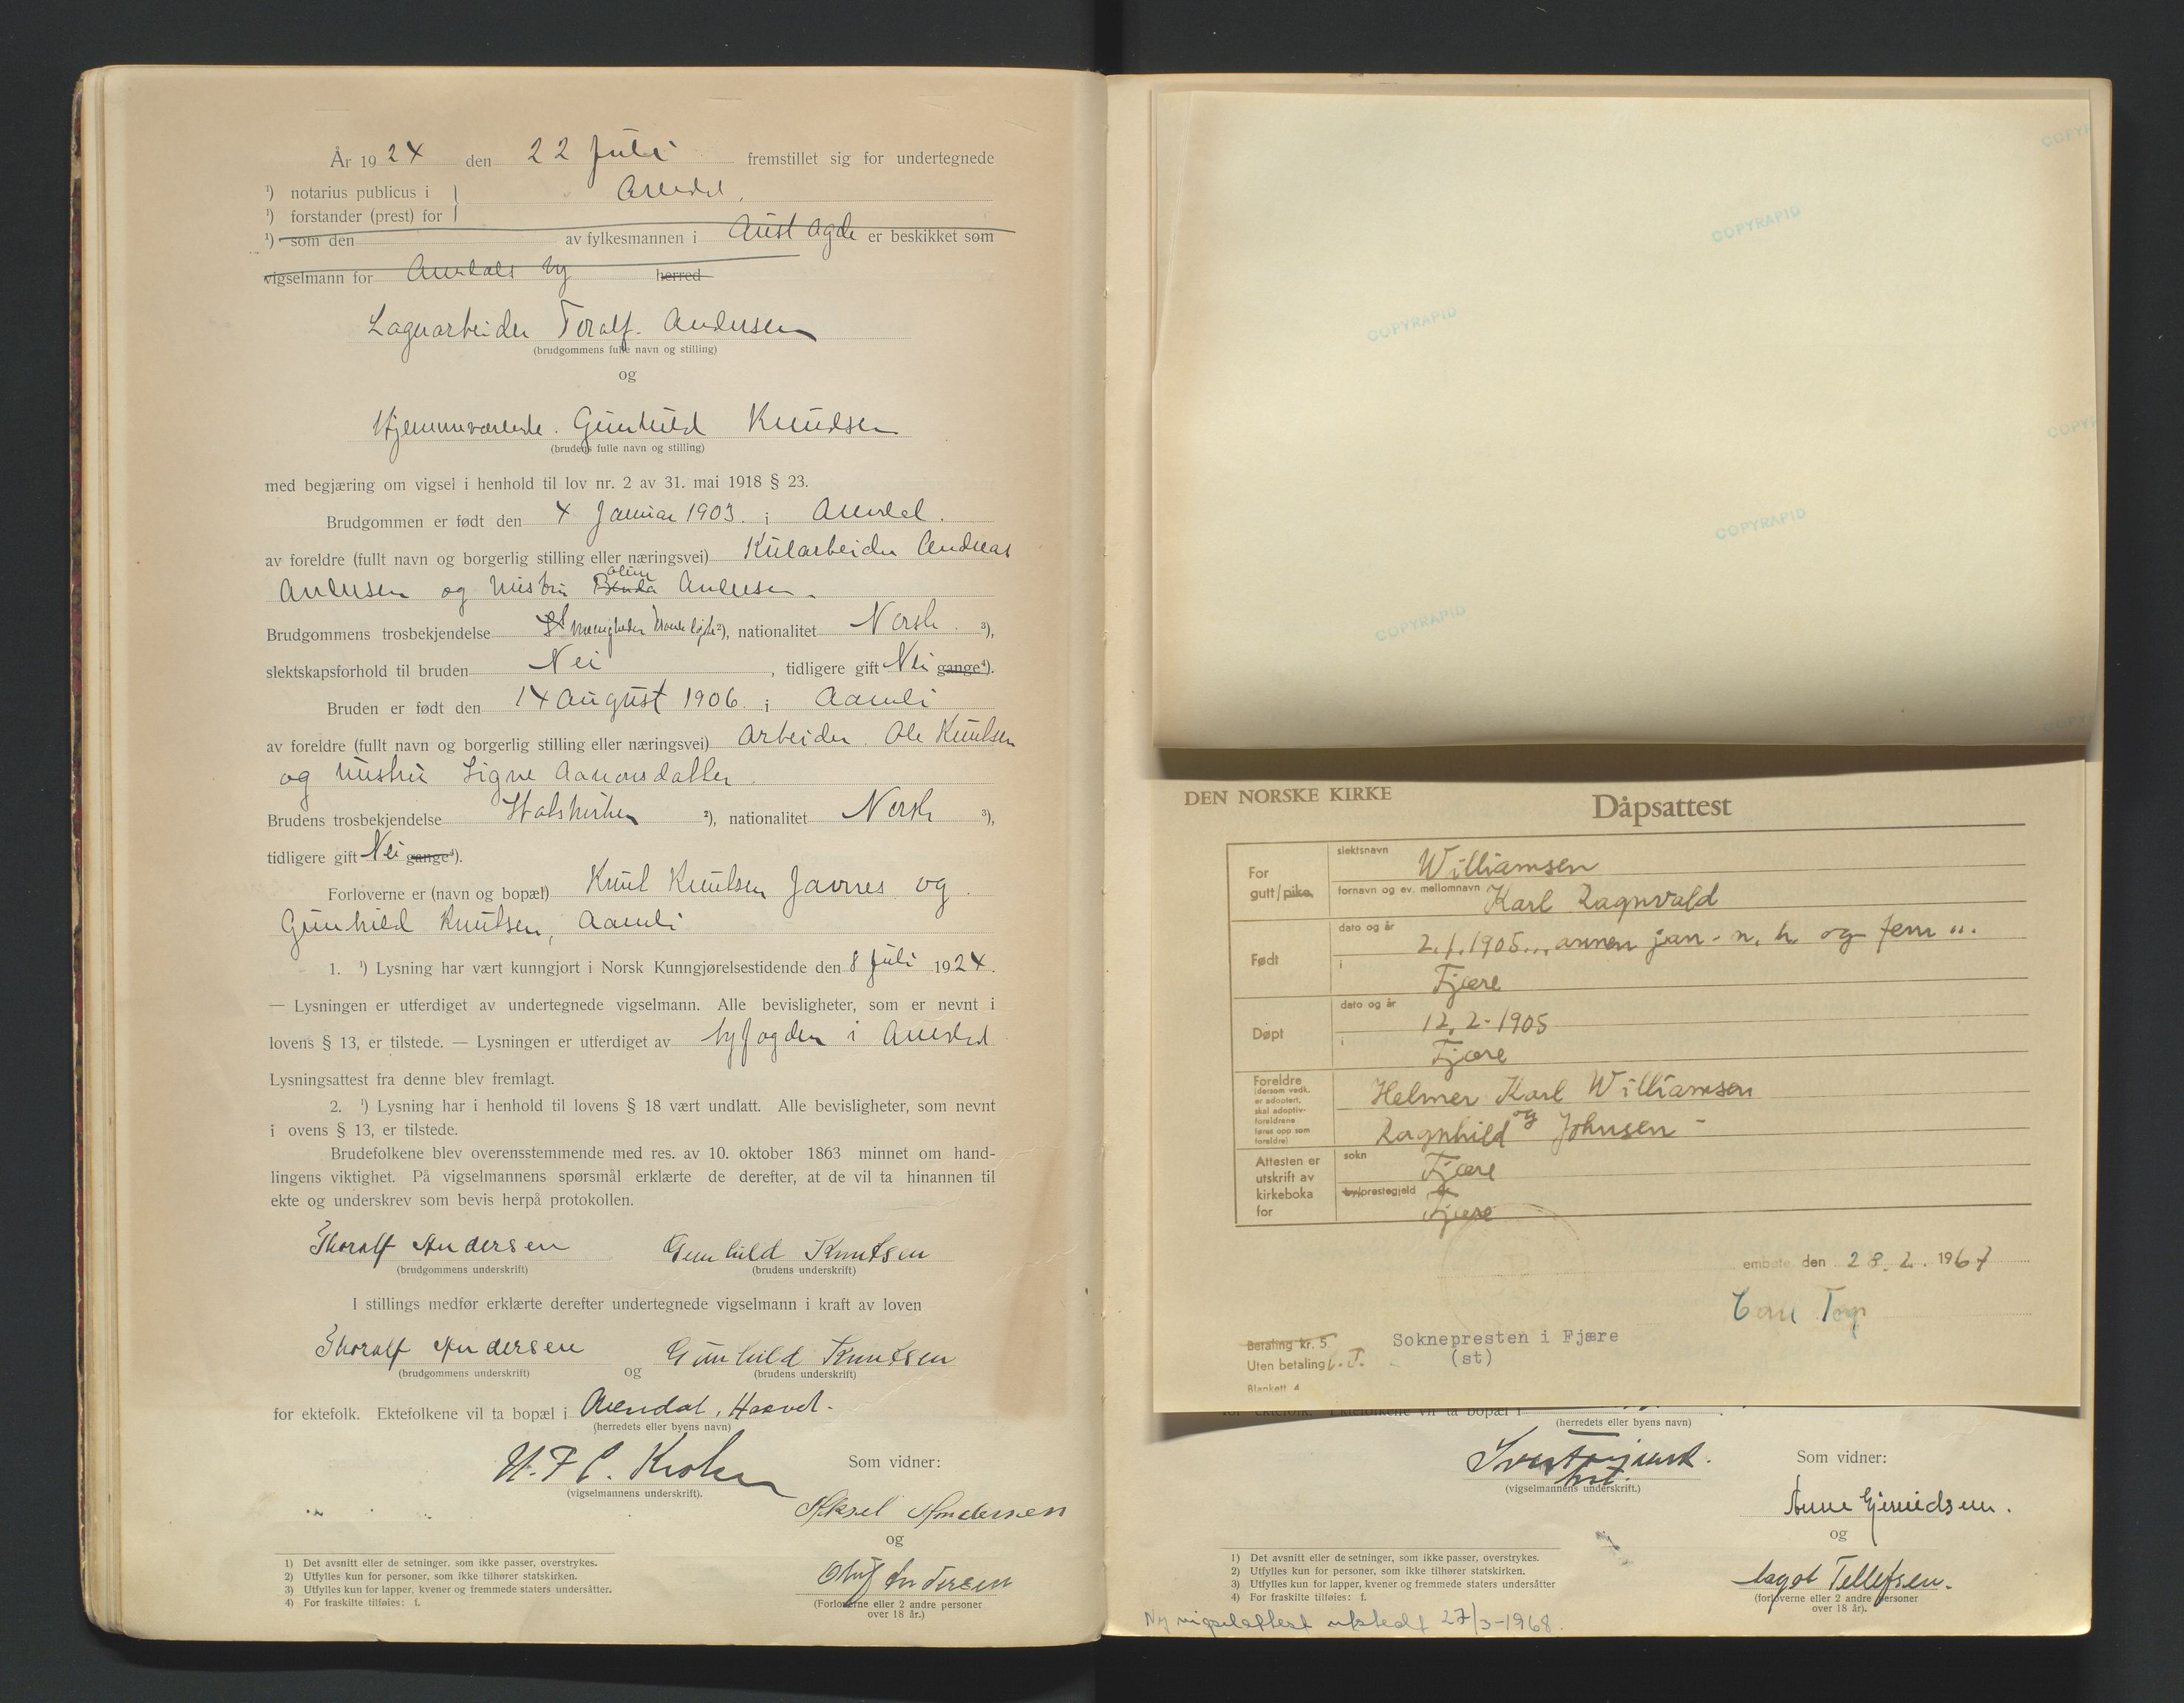 År 1924 den 22 Juli fremstillet sig for undertegnede
¹) notarius publicus i
Arendal.
¹) forstander (prest) for
¹) som den av fylkesmannen i Aust Agde er beskikket som
vigselmann for Arendals by herred
Lagerarbeider Toralf Andersen
(brudgommens fulle navn og stilling)
og
Hjemmeværende. Gunhild Knudsen
(brudens fulle navn og stilling)
med begjæring om vigsel i henhold til lov nr. 2 av 31. mai 1918 § 23.
Brudgommen er født den 4 Januar 1903 i Arendal.
av foreldre (fullt navn og borgerlig stilling eller næringsvei) Kularbeider Andreas
Andersen og hustru Oline Andersen.
Brudgommens trosbekjendelse ²), nationalitet Norsk. ³),
slektskapsforhold til bruden Nei, tidligere gift Nei gange⁴).
Bruden er født den 14 August 1906. i Aamli
av foreldre (fullt navn og borgerlig stilling eller næringsvei) Arbeider Ole Knutsen
og hustru Signe Aanonsdatter.
Brudens trosbekjendelse Statskirken ²), nationalitet Norsk ³),
tidligere gift Nei gange⁴).
Forloverne er (navn og bopæl) Knut Knutsen Javnes og
Gunhild Knutsen, Aamli
1. ¹) Lysning har vært kunngjort i Norsk Kunngjørelsestidende den 8 Juli 1924.
— Lysningen er utferdiget av undertegnede vigselmann. Alle bevisligheter, som er nevnt i
lovens § 13, er tilstede. — Lysningen er utferdiget av byfogden i Arendal
Lysningsattest fra denne blev fremlagt.
2. ¹) Lysning har i henhold til lovens § 18 vært undlatt. Alle bevisligheter, som nevnt
i ovens § 13, er tilstede.
Brudefolkene blev overensstemmende med res. av 10. oktober 1863 minnet om hand-
lingens viktighet. På vigselmannens spørsmål erklærte de derefter, at de vil ta hinannen til
ekte og underskrev som bevis herpå protokollen.
Thoralf Andersen Gunhild Knutsen
(brudgommens underskrift) (brudens underskrift)
I stillings medfør erklærte derefter undertegnede vigselmann i kraft av loven
Thoralf Andersen og Gunhild Knutsen
(brudgommens underskrift) (brudens underskrift)
for ektefolk. Ektefolkene vil ta bopæl i Arendal,
(herredets eller byens navn)
H. F. C. Krohn
(vigselmannens underskrift).
Som vidner:
Aksel Andersen
og
Oluf Andersen
(Forloverne eller 2 andre personer
over 18 år.)
1) Det avsnitt eller de setninger, som ikke passer, overstrykes.
2) Utfylles kun for personer, som ikke tilhører statskirken.
3) Utfylles kun for lapper, kvener og fremmede staters undersåtter.
4) For fraskilte tilføies: f.
COPYRAPID
COPYRAPID
COPYRAPID
COPYRAPID
DEN NORSKE KIRKE
Dåpsattest
For gutt/pike
slektsnavn Williamsen
fornavn og ev. mellomnavn Karl Ragnvald
Født
dato og år 2.1.1905... annen jan - n. h. og fem ".
i Fjære
Døpt
dato og år 12.2-1905
i Fjære
Foreldre
(dersom vedk.
er adoptert,
skal adoptiv-
foreldrene
føres opp som
foreldre)
Helmer Karl Williamsen
og
Ragnhild Johnsen -
Attesten er
utskrift av
kirkeboka
for
sokn Fjære
by/prestegjeld Fjære
embete, den 28.2. 1967
Betaling kr. 5.
Uten betaling
Soknepresten i Fjære
(st)
Blankett 4
for ektefolk. Ektefolkene vil ta bopæl i
(herredets eller byens navn)
(vigselmannens underskrift.)
Som vidner:
Anne
og
Aagot Tellefsen.
(forloverne eller 2 andre personer
over 18 år).
1) Det avsnitt eller de setninger, som ikke passer, overstrykes.
2) Utfylles kun for personer, som ikke tilhører statskirken.
3) Utfylles kun for lapper, kvener og fremmede staters undersåtter
4) For fraskilte tilføies: f.
Ny vigselattest utstedt 27/3-1968.